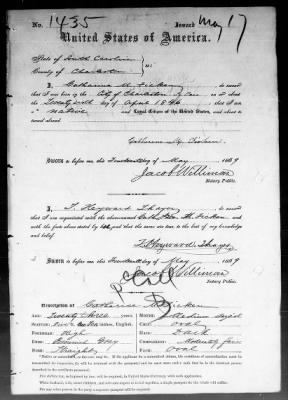 No. 1435 Issued May 17
United States of America.
State of South Carolina
County of Charleston } ss:
I, Catharine M. Dicken, do swear
that I was born in the City of Charleston S. Ca. on or about
the Twenty sixth day of April 1846; that I am
a native and Loyal Citizen of the United States, and about to
travel abroad.
Catharine M. Dicken
Sworn to before me, this Fourteenth day of May 1869
Jacob Williman
Notary Public.
I, T. Heyward Thayer, do swear
that I am acquainted with the above-named Catharine M. Dicken, and
with the facts above stated by her, and that the same are true to the best of my knowledge
and belief.
T. Heyward Thayer
Sworn to before me, this Fourteenth day of May 1869
Jacob Williman
Notary Public.
Description of Catharine Dicken
Age: Twenty three years. Mouth: Medium sized
Stature: Five feet inches, English. Chin: oval
Forehead: High Hair: Dark
Eyes: Grey Complexion: fair
Nose: Straight Face: Oval